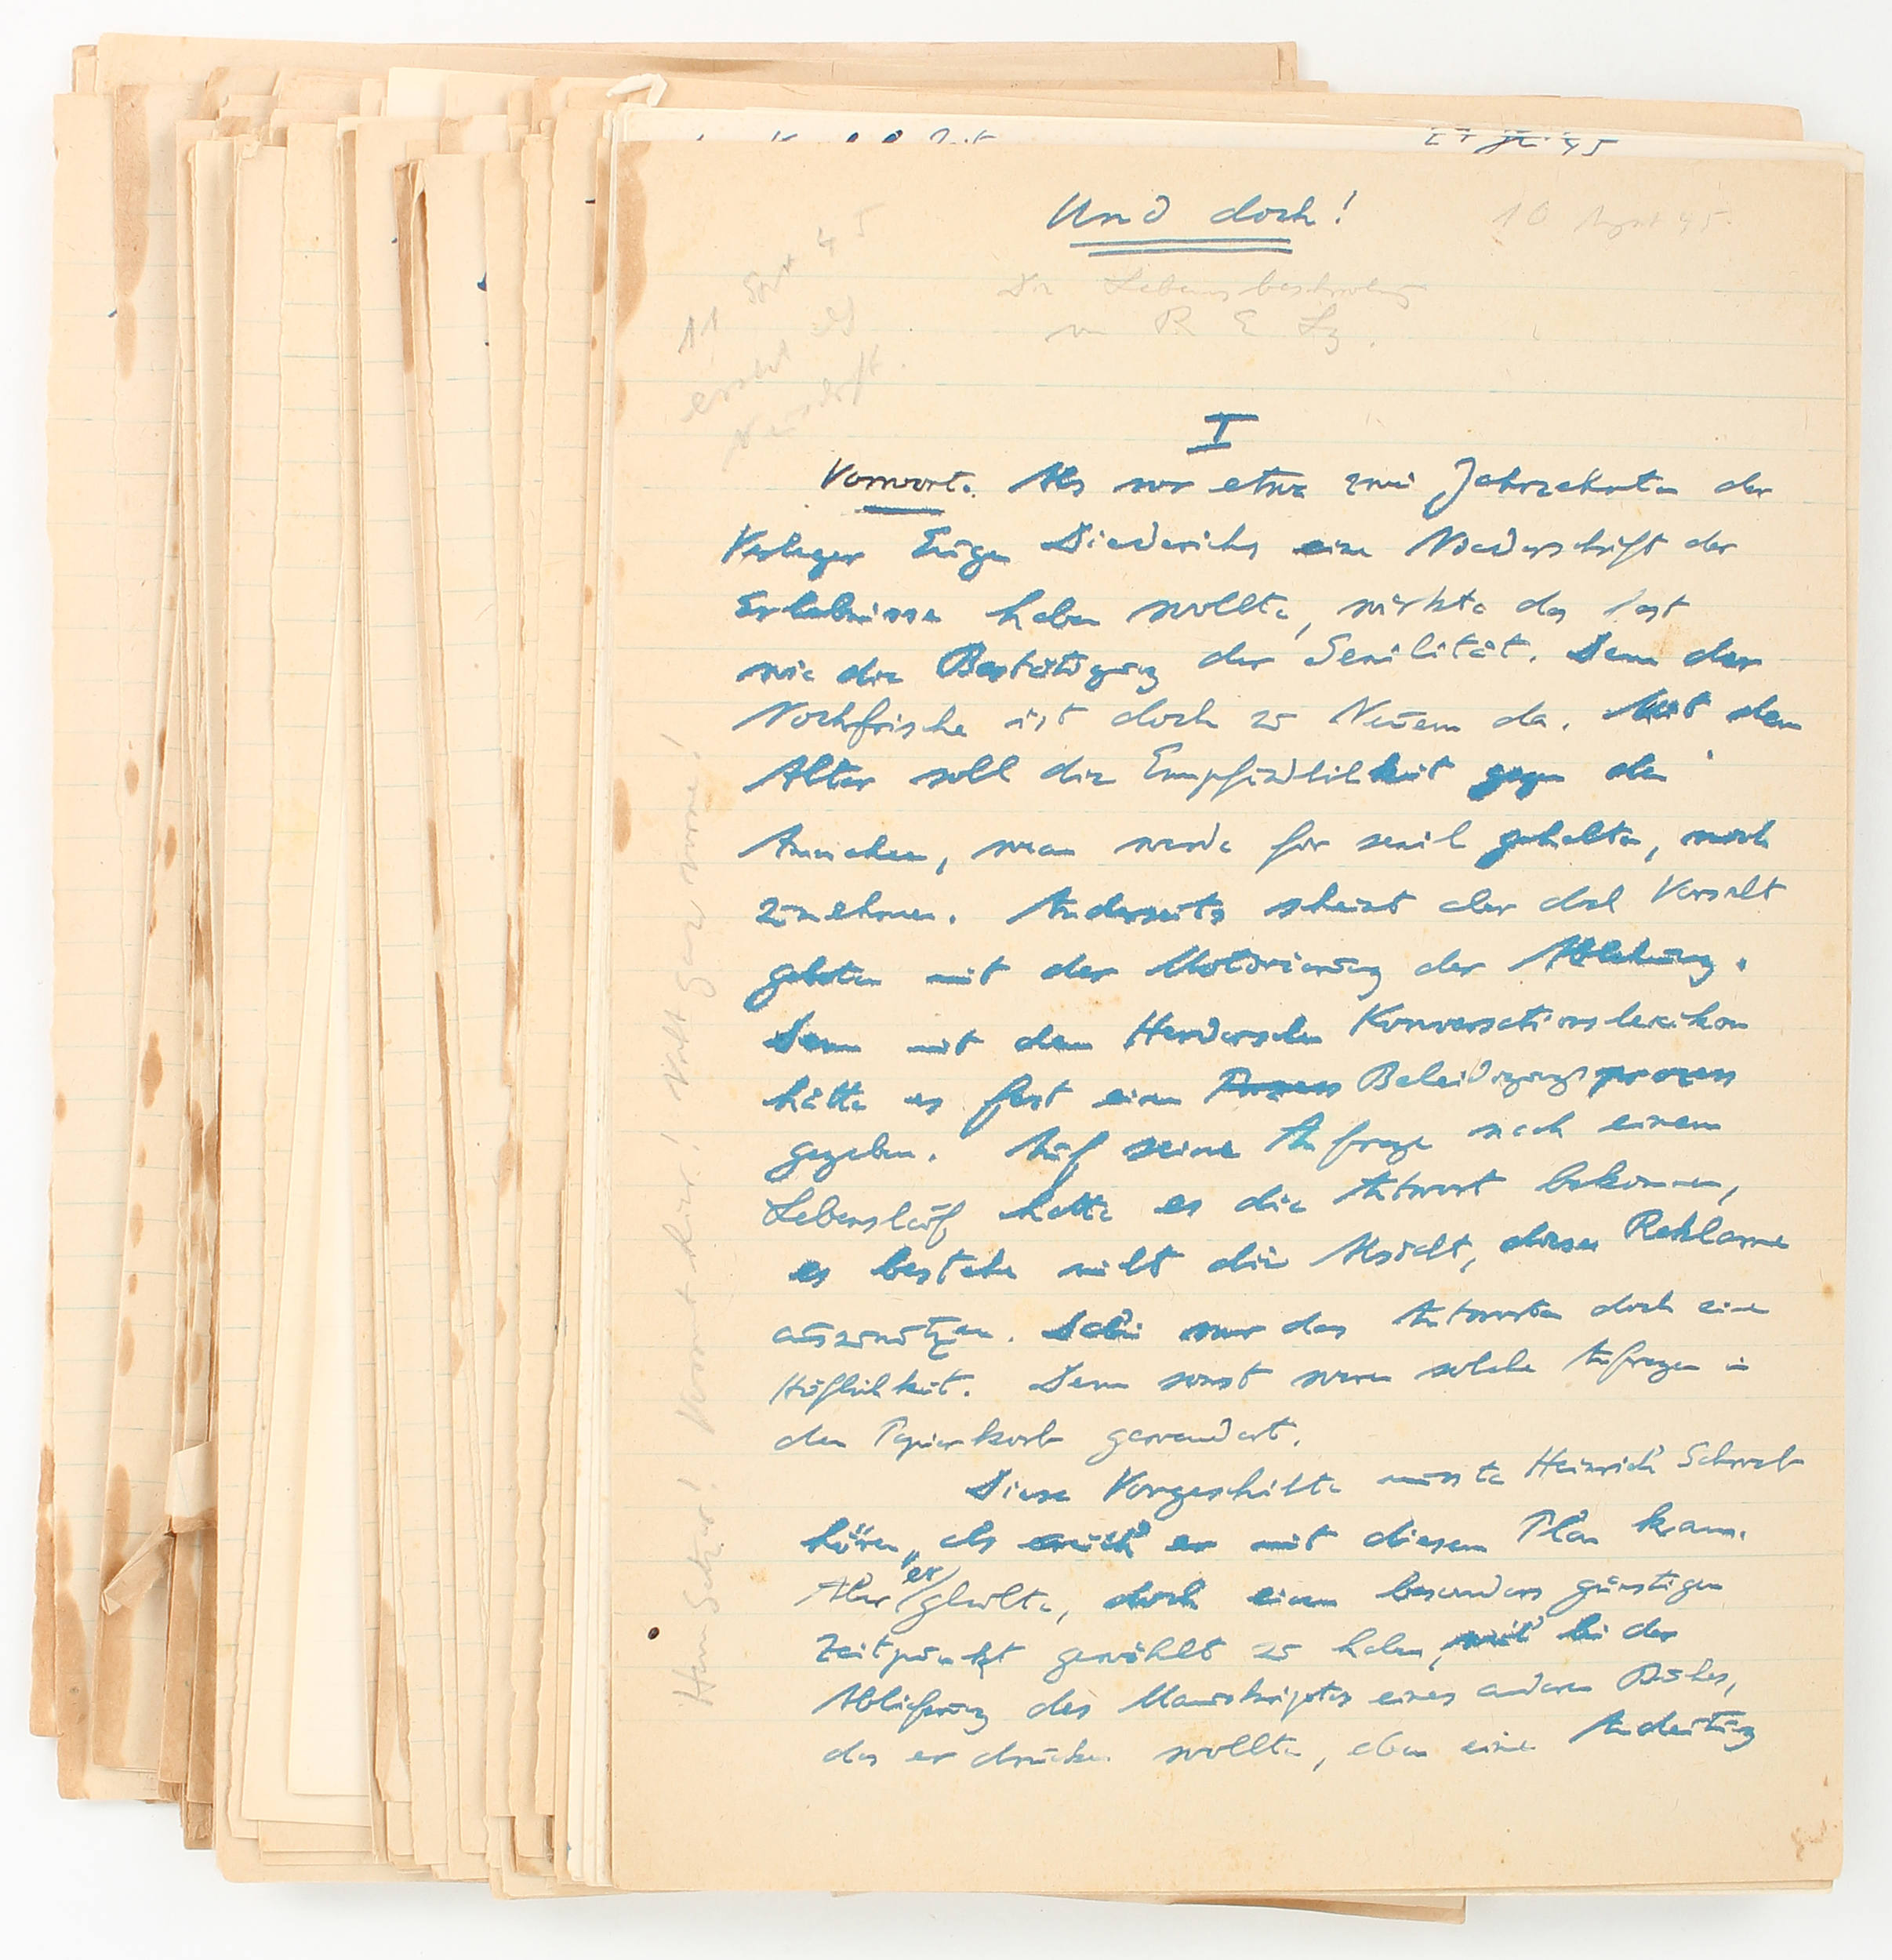 Und doch!
10 August 45.
Die Lebensbeschreibung
von R E Lz.
11 Sept 45
ersetzt als
I
Vorwort. Als vor etwa zwei Jahrzehnten der
Verleger Eugen Diederichs eine Niederschrift der
Erlebnisse haben wollte, wirkte das fast
wie die Bestätigung der Senilität. Denn der
Nochfrische ist doch zu Neuem da. Mit dem
Alter soll die Empfindlichkeit gegen den
Anschein, man werde für senil gehalten, noch
zunehmen. Anderseits scheint aber doch Vorsicht
geboten mit der Motivierung der Ablehnung.
Denn mit dem Herderschen Konversationslexikon
hätte es fast einen Prozess Beleidigungsprozess
gegeben. Auf seine Anfrage nach einem
Lebenslauf hatte es die Antwort bekommen,
es bestehe nicht die Absicht, diese Reklame
auszunützen. Dabei war das Antworten doch eine
Höflichkeit. Denn sonst waren solche Anfragen in
den Papierkorb gewandert.
Diese Vorgeschichte musste Heinrich Schwab
hören, als auch er mit diesem Plan kam.
Aber er glaubte, doch einen besonders günstigen
Zeitpunkt gewählt zu haben, weil bei der
Ablieferung des Manuskriptes eines anderen Buches,
das er drucken wollte, eben eine Andeutung
Herr Setzer! Kommt hier! Nicht ganz vorne!